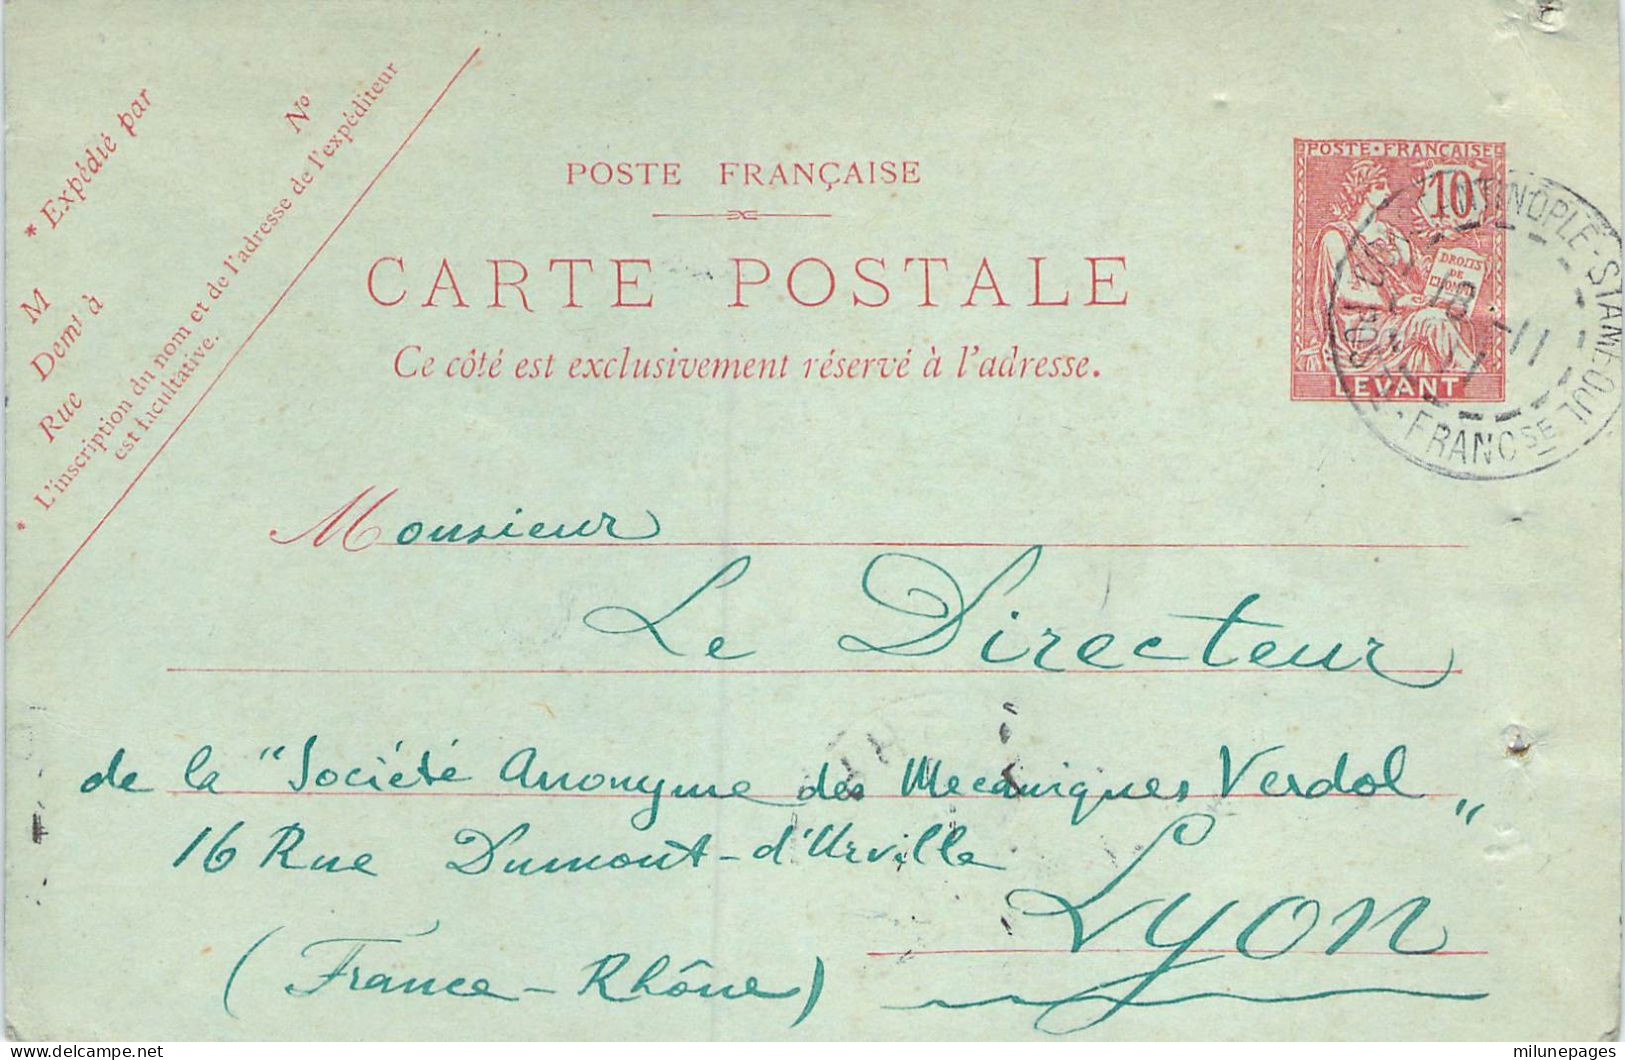 * Expédié par
M
Demt à
Rue
No
* L'inscription du nom et de l'adresse de l'expéditeur
est facultative.
POSTE FRANÇAISE
CARTE POSTALE
Ce côté est exclusivement réservé à l'adresse.
POSTE·FRANÇAISE
10
DROITS
DE
L'HOMME
LEVANT
CONSTANTINOPLE-STAMBOUL
POSTE FRANCSE
-11
Monsieur
Le Directeur
de la "Société Anonyme des Mecaniques Verdol"
16 Rue Dumont-d'Urville
Lyon
(France-Rhône)
milunepages